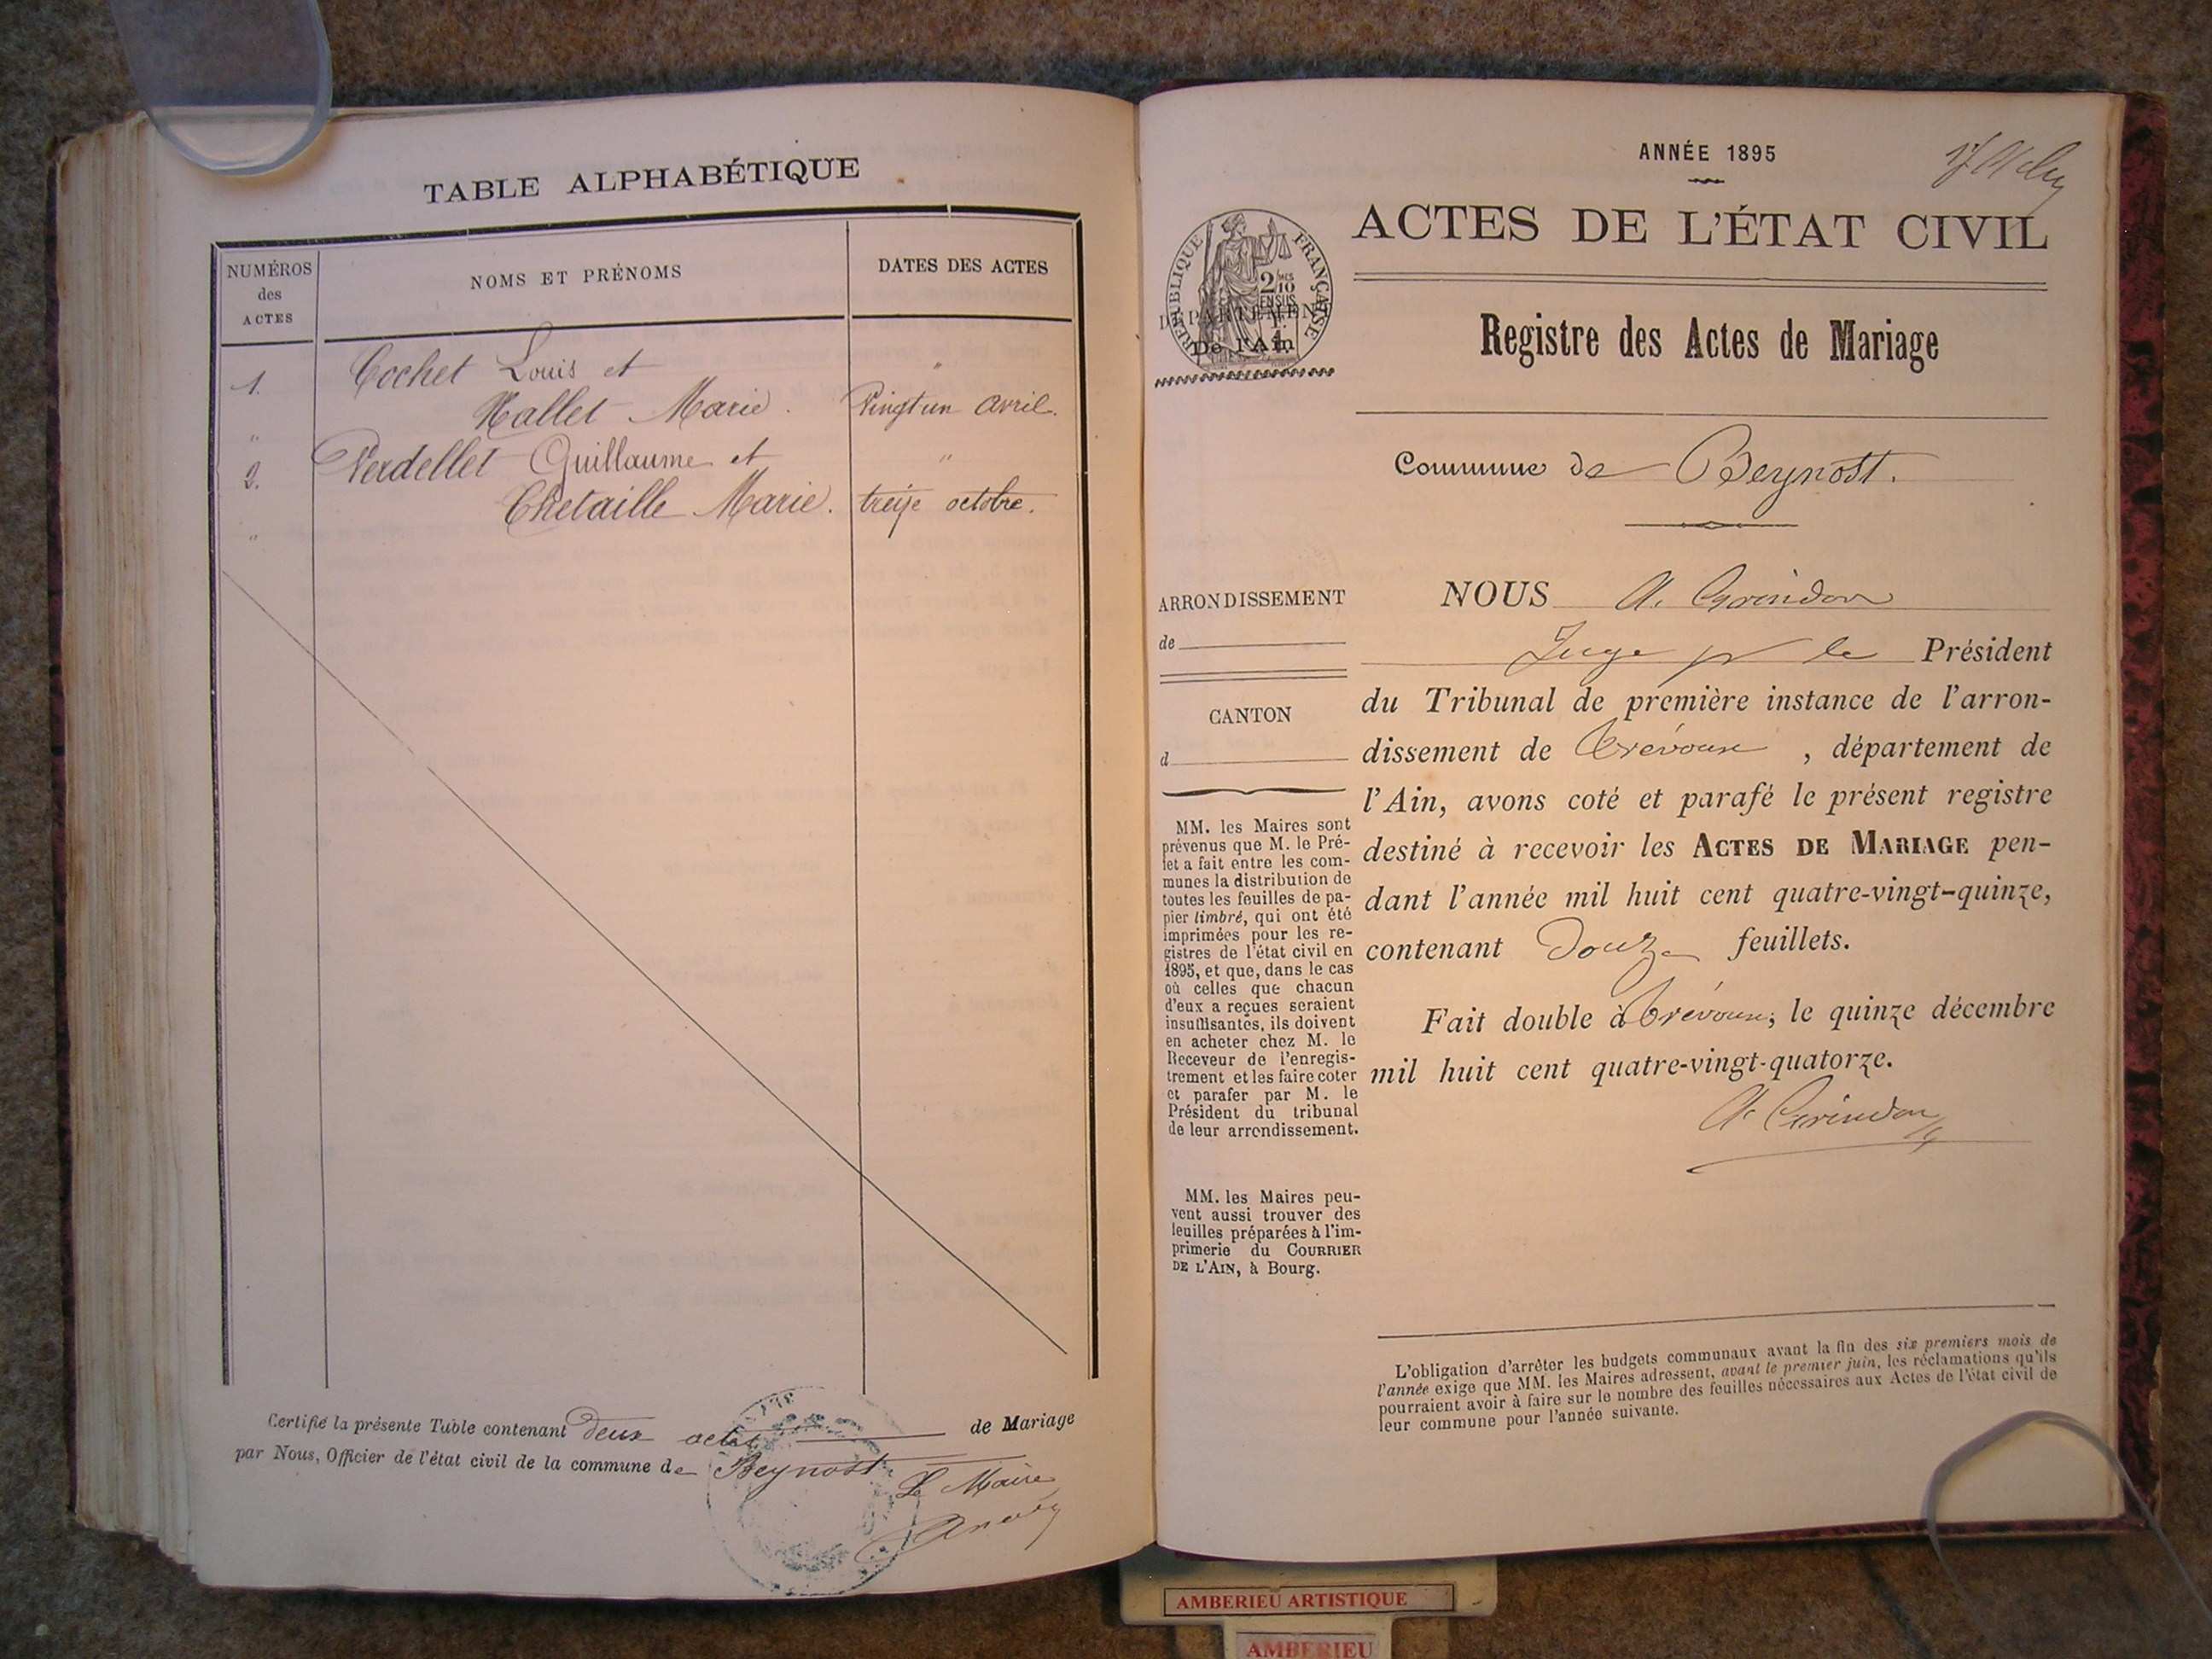 TABLE ALPHABÉTIQUE
NUMÉROS
des
ACTES
NOMS ET PRÉNOMS
DATES DES ACTES
1. Cochet Louis et "
" Hallet Marie. Vingt un avril.
2. Verdellet Guillaume et "
" Chetaille Marie. treize octobre.
Certifié la présente Table contenant deux actes de Mariage
par Nous, Officier de l'état civil de la commune de Beynost.
Le Maire
ANNÉE 1895
ACTES DE L'ÉTAT CIVIL
RÉPUBLIQUE FRANÇAISE
2/10
EN SUS
DÉPARTEMENT
De l'Ain
Registre des Actes de Mariage
Commune de Beynost.
ARRONDISSEMENT
de
CANTON
d
MM. les Maires sont
prévenus que M. le Pré-
fet a fait entre les com-
munes la distribution de
toutes les feuilles de pa-
pier timbré, qui ont été
imprimées pour les re-
gistres de l'état civil en
1895, et que, dans le cas
où celles que chacun
d'eux a reçues seraient
insuffisantes, ils doivent
en acheter chez M. le
Receveur de l'enregis-
trement et les faire coter
et parafer par M. le
Président du tribunal
de leur arrondissement.
MM. les Maires peu-
vent aussi trouver des
feuilles préparées à l'im-
primerie du COURRIER
DE L'AIN, à Bourg.
NOUS A. Grindon
Juge pr le Président
du Tribunal de première instance de l'arron-
dissement de Trévoux, département de
l'Ain, avons coté et parafé le présent registre
destiné à recevoir les ACTES DE MARIAGE pen-
dant l'année mil huit cent quatre-vingt-quinze,
contenant Douze feuillets.
Fait double à Trévoux, le quinze décembre
mil huit cent quatre-vingt-quatorze.
A. Grindon
L'obligation d'arrêter les budgets communaux avant la fin des six premiers mois de
l'année exige que MM. les Maires adressent, avant le premier juin, les réclamations qu'ils
pourraient avoir à faire sur le nombre des feuilles nécessaires aux Actes de l'état civil de
leur commune pour l'année suivante.
AMBERIEU ARTISTIQUE
AMBERIEU